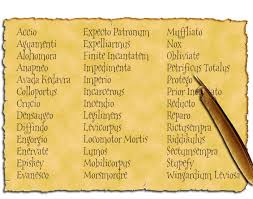 Accio Expecto Patronum Muffliato
Aguamenti Expelliarmus Nox
Alohomora Finite Incantatem Obliviate
Anapneo Impedimenta Petrificus Totalus
Avada Kedavra Imperio Protego
Colloportus Incarcerous Prior Incantato
Crucio Incendio Reducto
Densaugeo Legilimens Reparo
Diffindo Levicorpus Rictusempra
Engorgio Locomotor Mortis Riddikulus
Enervate Lumos Sectumsempra
Episkey Mobilicorpus Stupefy
Evanesco Morsmordre Wingardium Leviosa